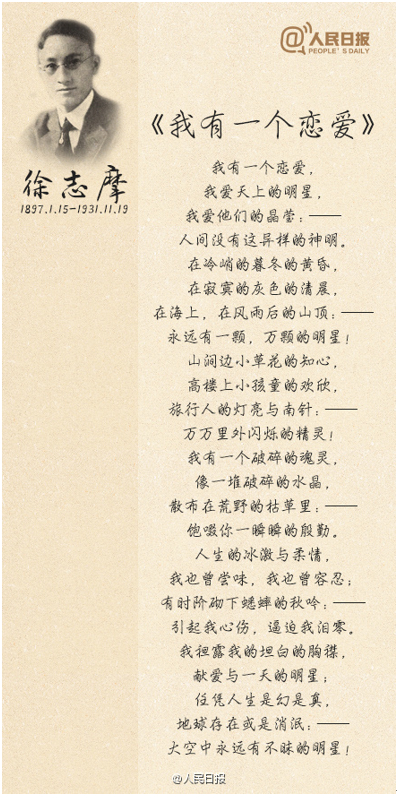 @人民日报
PEOPLE'S DAILY
徐志摩
1897.1.15-1931.11.19
《我有一个恋爱》
我有一个恋爱，
我爱天上的明星，
我爱他们的晶莹：——
人间没有这异样的神明。
在冷峭的暮冬的黄昏，
在寂寞的灰色的清晨，
在海上，在风雨后的山顶：——
永远有一颗，万颗的明星！
山涧边小草花的知心，
高楼上小孩童的欢欣，
旅行人的灯亮与南针：——
万万里外闪烁的精灵！
我有一个破碎的魂灵，
像一堆破碎的水晶，
散布在荒野的枯草里：——
饱啜你一瞬瞬的殷勤。
人生的冰激与柔情，
我也曾尝味，我也曾容忍；
有时阶砌下蟋蟀的秋吟：——
引起我心伤，逼迫我泪零。
我袒露我的坦白的胸襟，
献爱与一天的明星；
任凭人生是幻是真，
地球存在或是消泯：——
大空中永远有不昧的明星！
@人民日报